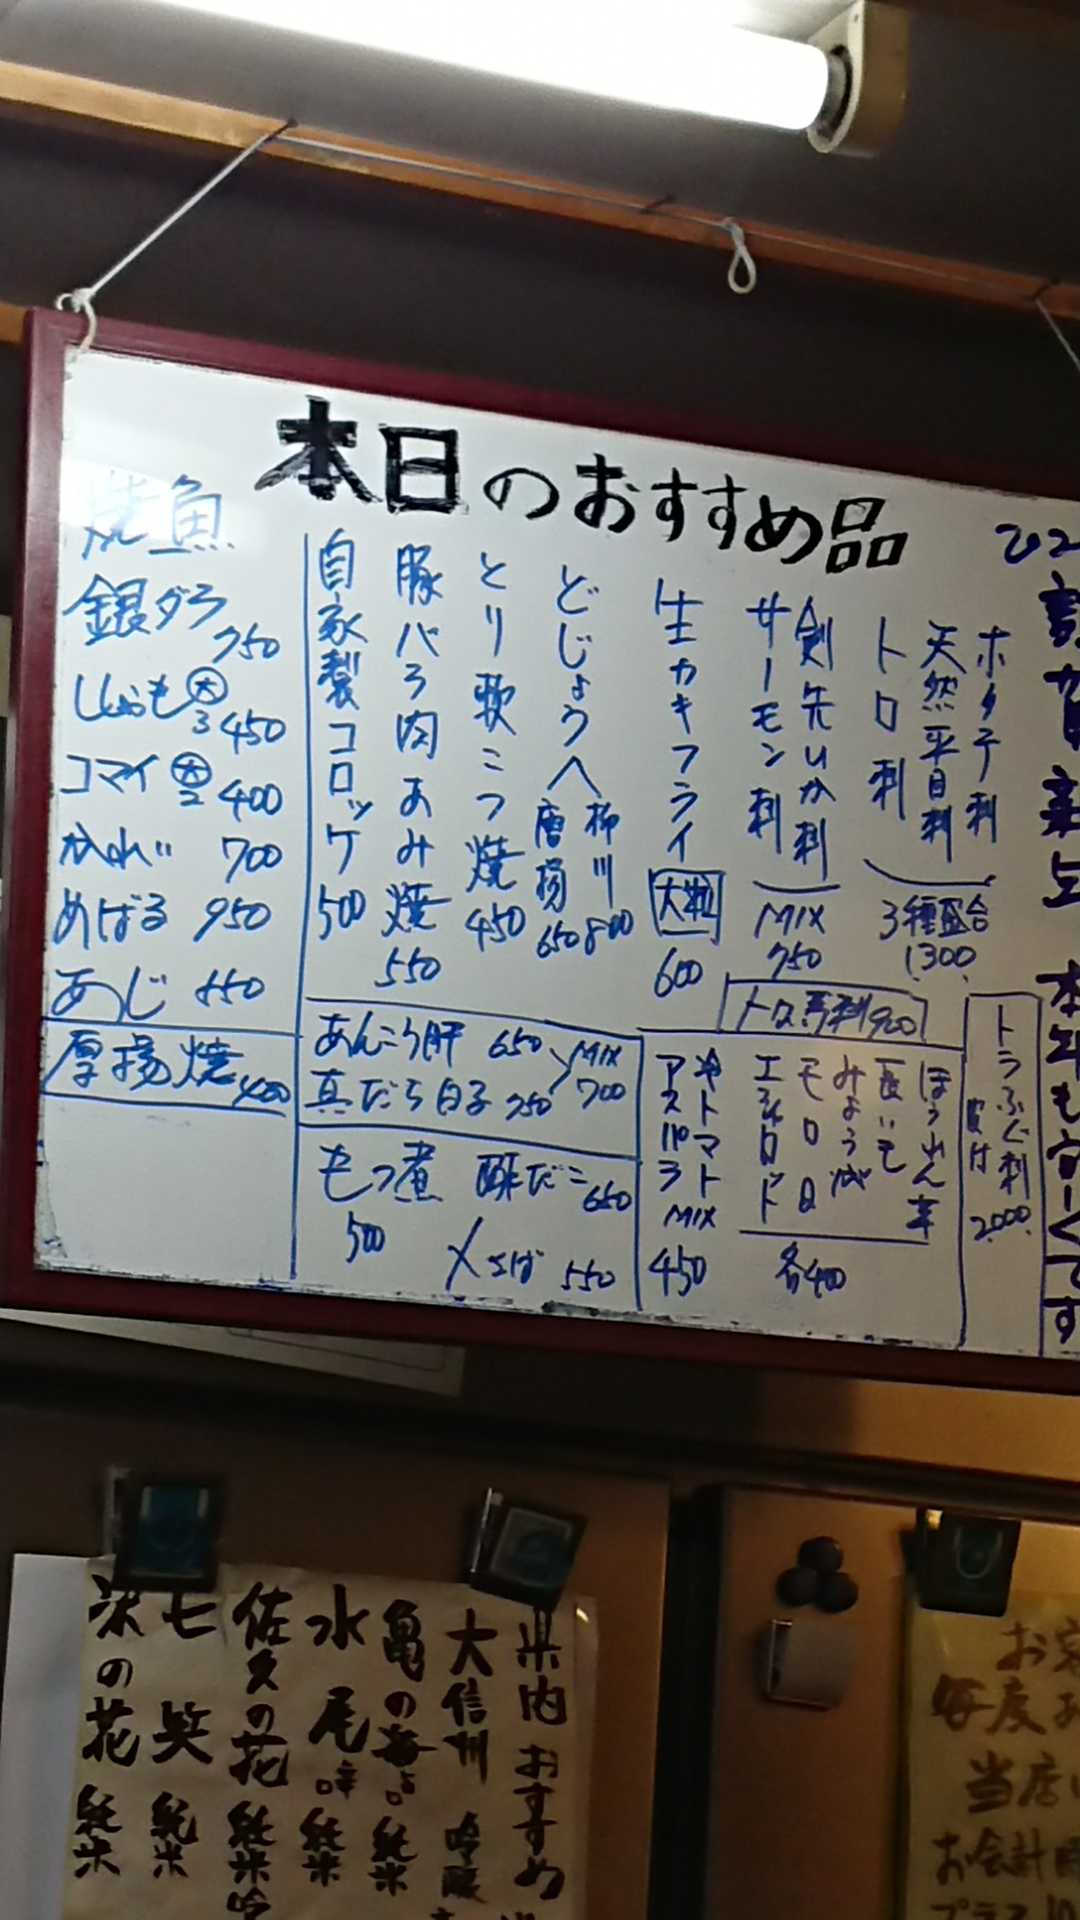 本日のおすすめ品
謹賀新年 本年もヨロシクです
ホタテ刺
天然平目刺
トロ刺
3種盛合
1300
剣先いか刺
サーモン刺
MIX
750
生カキフライ
大粒
600
どじょう
柳川
800
唐揚
650
とり軟こつ焼
450
豚バラ肉あみ焼
550
自家製コロッケ
500
焼魚
銀ダラ
750
ししゃも 大 3 450
コマイ 大 2 400
かれい 700
めばる 950
あじ 550
厚揚焼 400
トロ馬刺 900
トラふぐ刺
皮付
2000
あんこう肝 650
真だら白子 750
MIX
700
もつ煮
500
酢だこ 650
〆さば 550
ほうれん草
長いも
みょうが
モロQ
エシャロット
各400
冷トマト
アスパラ
MIX
450
県内おすすめ
大信州 吟醸
亀の海 純米
水尾 純米
佐久の花 純米吟
七笑 純米
深の花 純米
毎度お
当店
お会計
プラス10